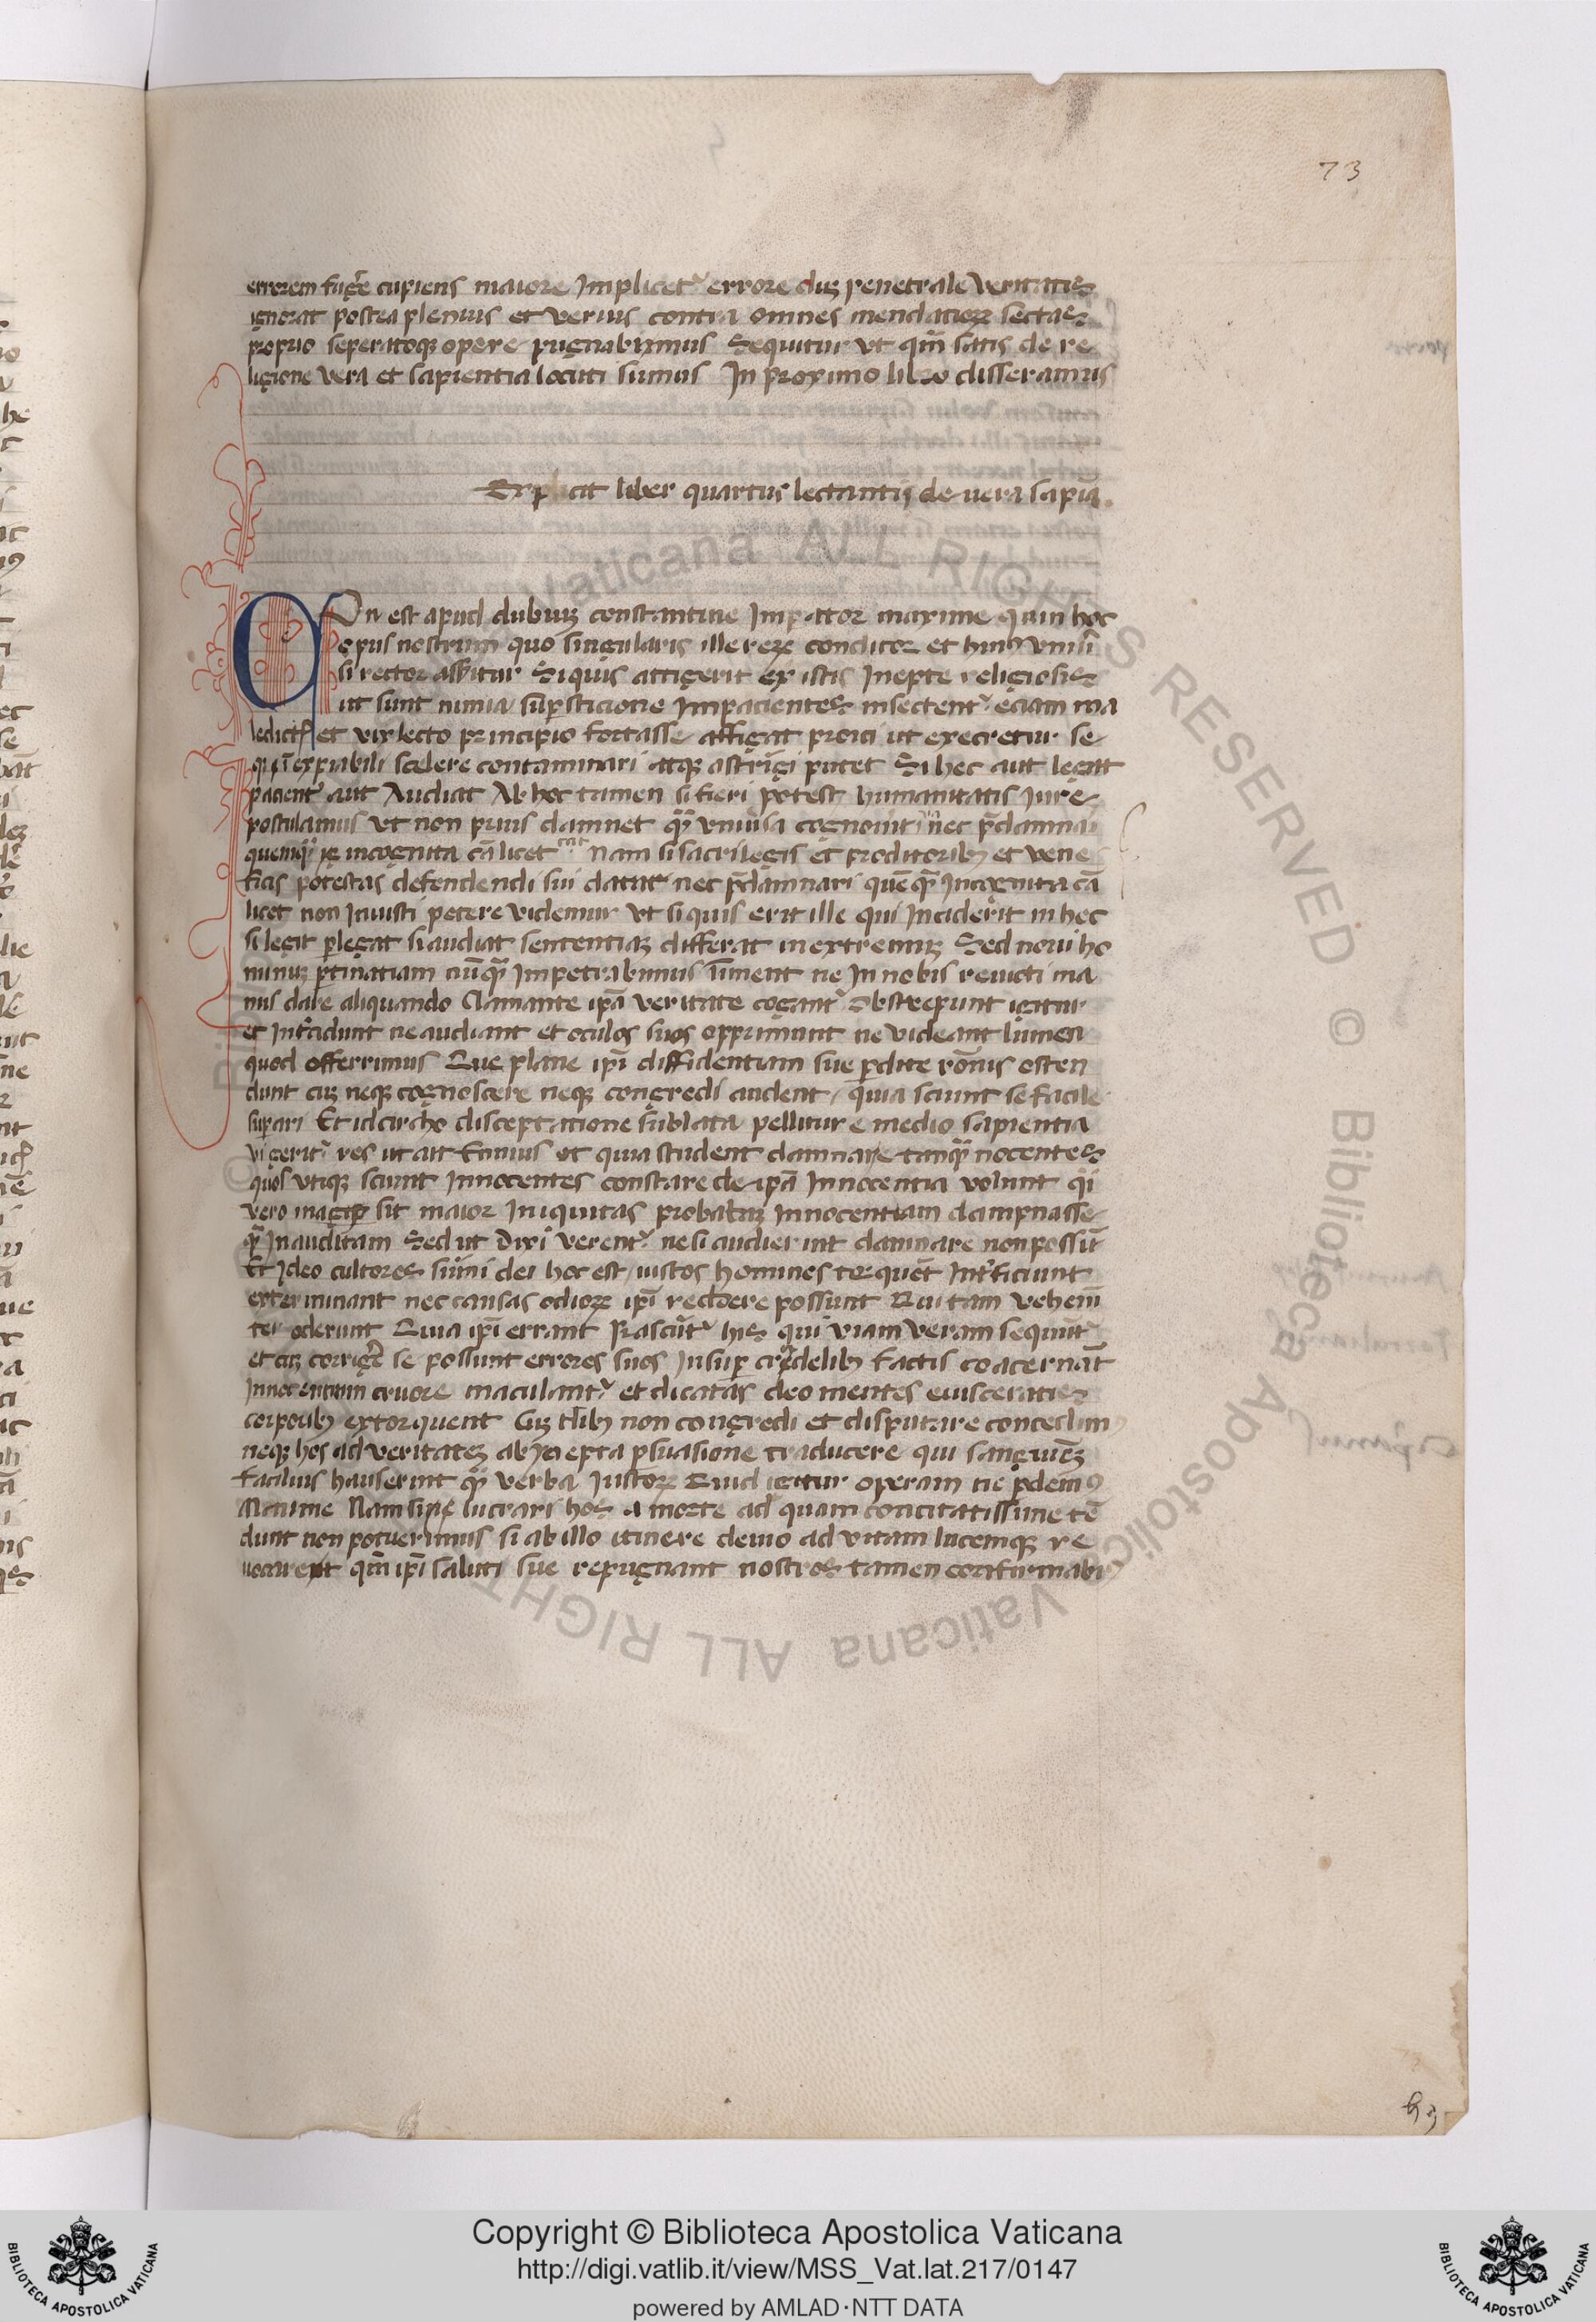 73
errorem fug̃e cupiens maiore Implicet᷑ errore duꝫ penetrale veritatis
ignorat postea plenius et verius contra omnes mendatioꝝ sectas
proprio seperatoqꝫ opere pugnabimus Sequitur vt qm̃ satis de re
ligione vera et sapientia locuti sumus In proximo libro disseramus
Explicit liber quartus lectantij de uera sapia.
On est apud dubiuꝫ constantine Imp̃ator maxime quin hoc
opus nostrum quo singularis ille reꝝ conditor et huiꝰ vniũ
si rector assitur Si quis attigerit ex istis Inepte religiosis
ut sunt nimia suꝑsticione Impacientes insectent᷑ eciam ma
ledictꝭ et vix lecto principio fortasse affigat proici ut execretur se
expiabili scelere contaminari atqꝫ astrĩgi putet Si hec aut legat
pacient̃ aut Audiat Ab hoc tamen si fieri potest humanitatis Jure
postulamus vt non prius damnet qͣꝫ vniũsa cognouit nec p̃damnai
incognita cã licet Nam si sacrilegis et proditoribꝫ et vene
ficis potestas defendendi sui datur nec p̃damnari quẽqͣꝫ Incognita cã
licet non Iniusti petere videmur vt si quis erit ille qui Inciderit in hec
si legit ꝑlegat si audiat sententiaꝫ differat in extremuꝫ Sed noui ho
minuꝫ ꝑtinatiam nũqͣꝫ Impetrabimus Timent ne In nobis reuicti ma
nus dare aliquando Clamante ipã veritate cogant᷑ Obstrepunt igitur
et Int̃cidunt ne audiant et oculos suos opprimunt ne videant lumen
quod offerrimus Que plane ipĩ diffidentiam sue ꝑdite rõnis osten
dunt cuꝫ neqꝫ cognoscere neqꝫ congredi audent quia sciunt se facile
suꝑari Et idcircho disceptatione sublata pellitur e medio sapientia
vi gerit᷑ res ut ait Ennius et quia student damnare tanqͣꝫ nocentes
quos vtiqꝫ sciunt Innocentes constare de ipã Innocentia volunt qͣi
vero magis sit maior Iniquitas probataꝫ Innocentiam dampnasse
qͣꝫ Inauditam Sed ut Dixi verent᷑ ne si audierint damnare non possũt
Et Ideo cultores sũmi dei hoc est iustos homines torquẽt Int̃ficiunt
exterminant nec causas odioꝝ ipĩ reddere possunt Qui tam vehem̃
ter oderunt Quia ipĩ errant Irascũt᷑ his qui viam veram sequũt᷑
et cuꝫ corrig̃e se possunt errores suos Insuꝑ crudelibꝫ factis coacernãt
Innocentium cruore maculant᷑ et dicatas deo mentes euisceratis
corporibꝫ extorquent Cuꝫ tl̃ibꝫ non congredi et disputare concedim
neqꝫ hos ad veritateꝫ ab Inepta ꝑsuasione traducere qui sanguinẽ
facilius hauserint qͣꝫ verba Iustoꝝ Quid igitur operam ne ꝑdemꝰ
Maxime Nam si lucrari hos a morte ad quam concitatissime tẽ
dunt non potuerimus si ab illo itinere deuio ad vitam lucemqꝫ re
uocarent qm̃ ipĩ saluti sue repugnant nostros tamen confirmabiꝰ
Copyright © Biblioteca Apostolica Vaticana
http://digi.vatlib.it/view/MSS_Vat.lat.217/0147
powered by AMLAD·NTT DATA